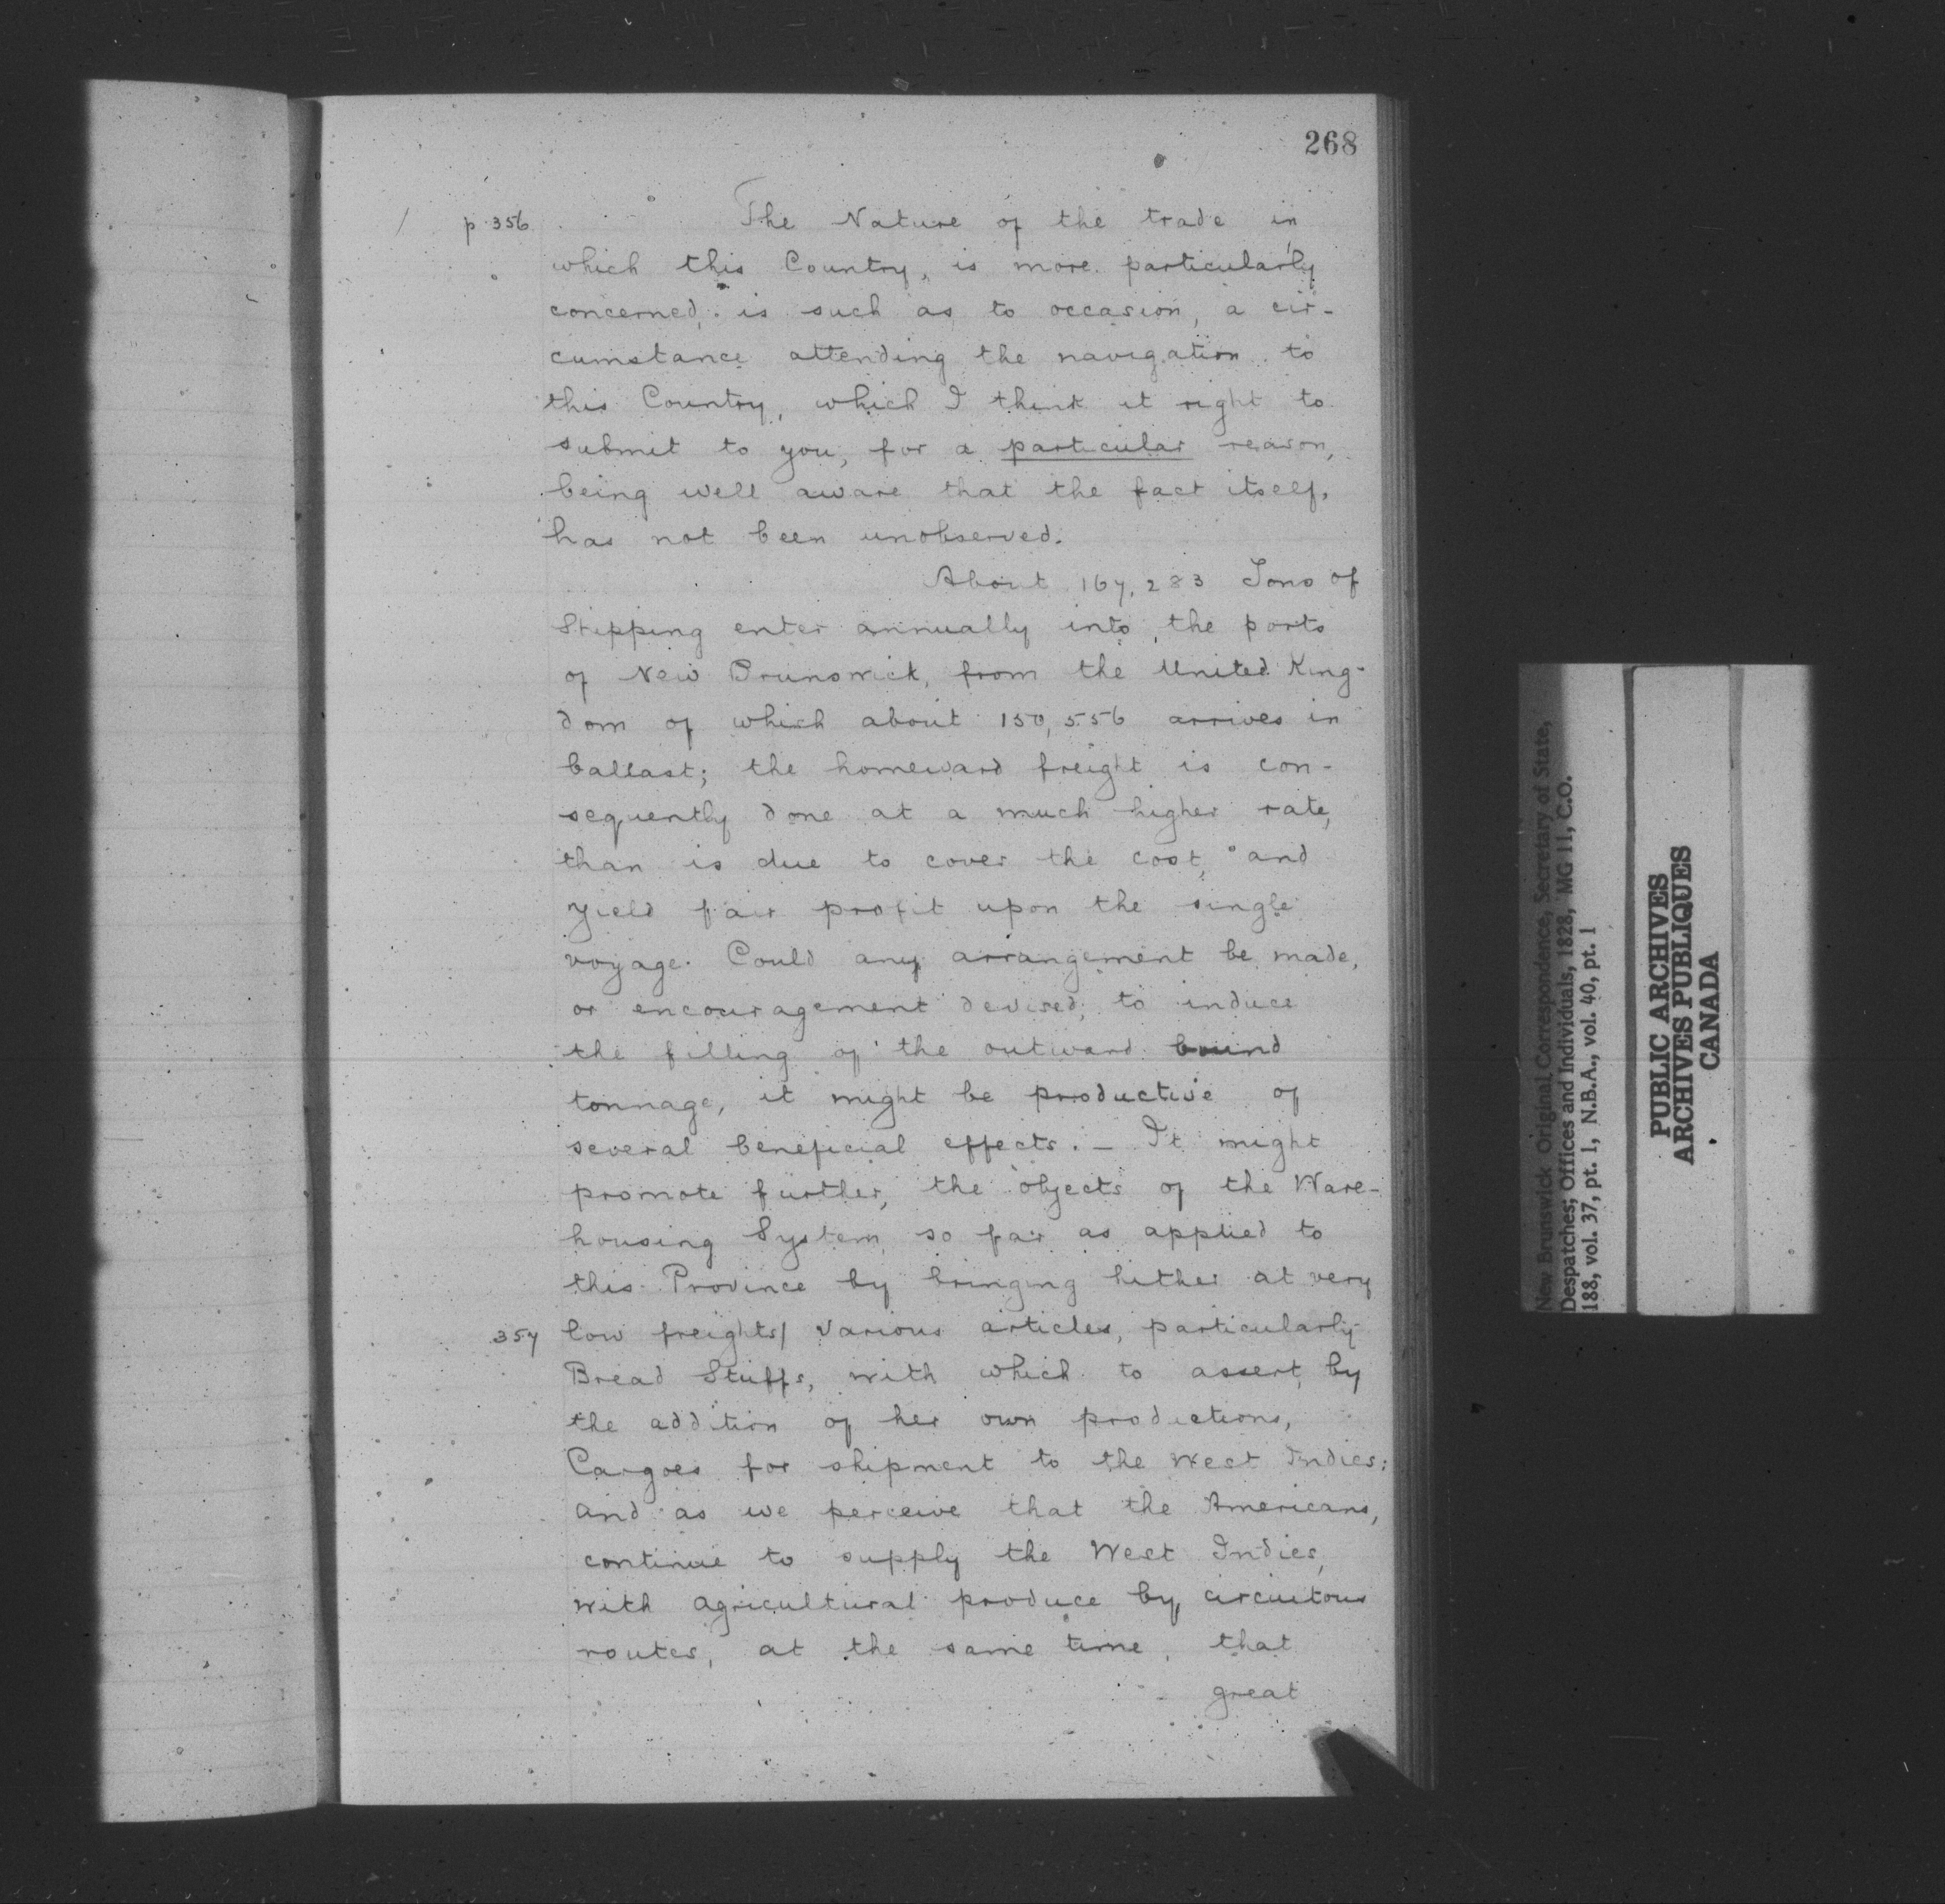 268
p. 356 The Nature of the trade in
which this Country, is more particularly
concerned, is such as to occasion, a cir-
cumstance attending the navigation to
this Country, which I think it right to
submit to you, for a particular reason,
being well aware that the fact itself,
has not been unobserved.
About 167,283 Tons of
Shipping enter annually into the ports
of New Brunswick, from the United King-
dom of which about 150,556 arrives in
ballast; the homeward freight is con-
sequently done at a much higher rate,
than is due to cover the cost, and
yield fair profit upon the single
voyage. Could any arrangement be made,
or encouragement devised, to induce
the filling of the outward bound
tonnage, it might be productive of
several beneficial effects. — It might
promote further, the objects of the Ware-
housing System, so far as applied to
this Province by bringing hither at very
357 low freights/ various articles, particularly
Bread Stuffs, with which to assert, by
the addition of her own productions,
Cargoes for shipment to the West Indies:
and as we perceive that the Americans,
continue to supply the West Indies,
with agricultural produce by circuitous
routes, at the same time, that
great
New Brunswick Original Correspondence, Secretary of State,
Despatches; Offices and Individuals, 1828, MG 11, C.O.
188, vol. 37, pt. 1, N.B.A., vol. 40, pt. 1
PUBLIC ARCHIVES
ARCHIVES PUBLIQUES
CANADA